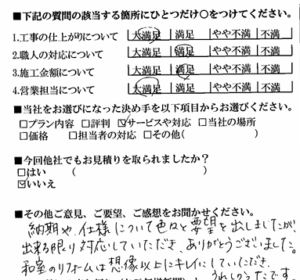 ■下記の質問の該当する箇所にひとつだけ○をつけてください。
1.工事の仕上がりについて 大満足 満足 やや不満 不満
2.職人の対応について 大満足 満足 やや不満 不満
3.施工金額について 大満足 満足 やや不満 不満
4.営業担当について 大満足 満足 やや不満 不満
■当社をお選びになった決め手を以下項目からお選びください。
□プラン内容 □評判 ☑サービスや対応 □当社の場所
□価格 □担当者の対応 □その他( )
■今回他社でもお見積りを取られましたか？
□はい ( )
☑いいえ
■その他ご意見、ご要望、ご感想をお聞かせください。
納期や仕様について色々と要望を出しましたが、
出来る限り対応していただき、ありがとうございました。
和室のリフォームは想像以上にキレイにしていただき、
うれしかったです。